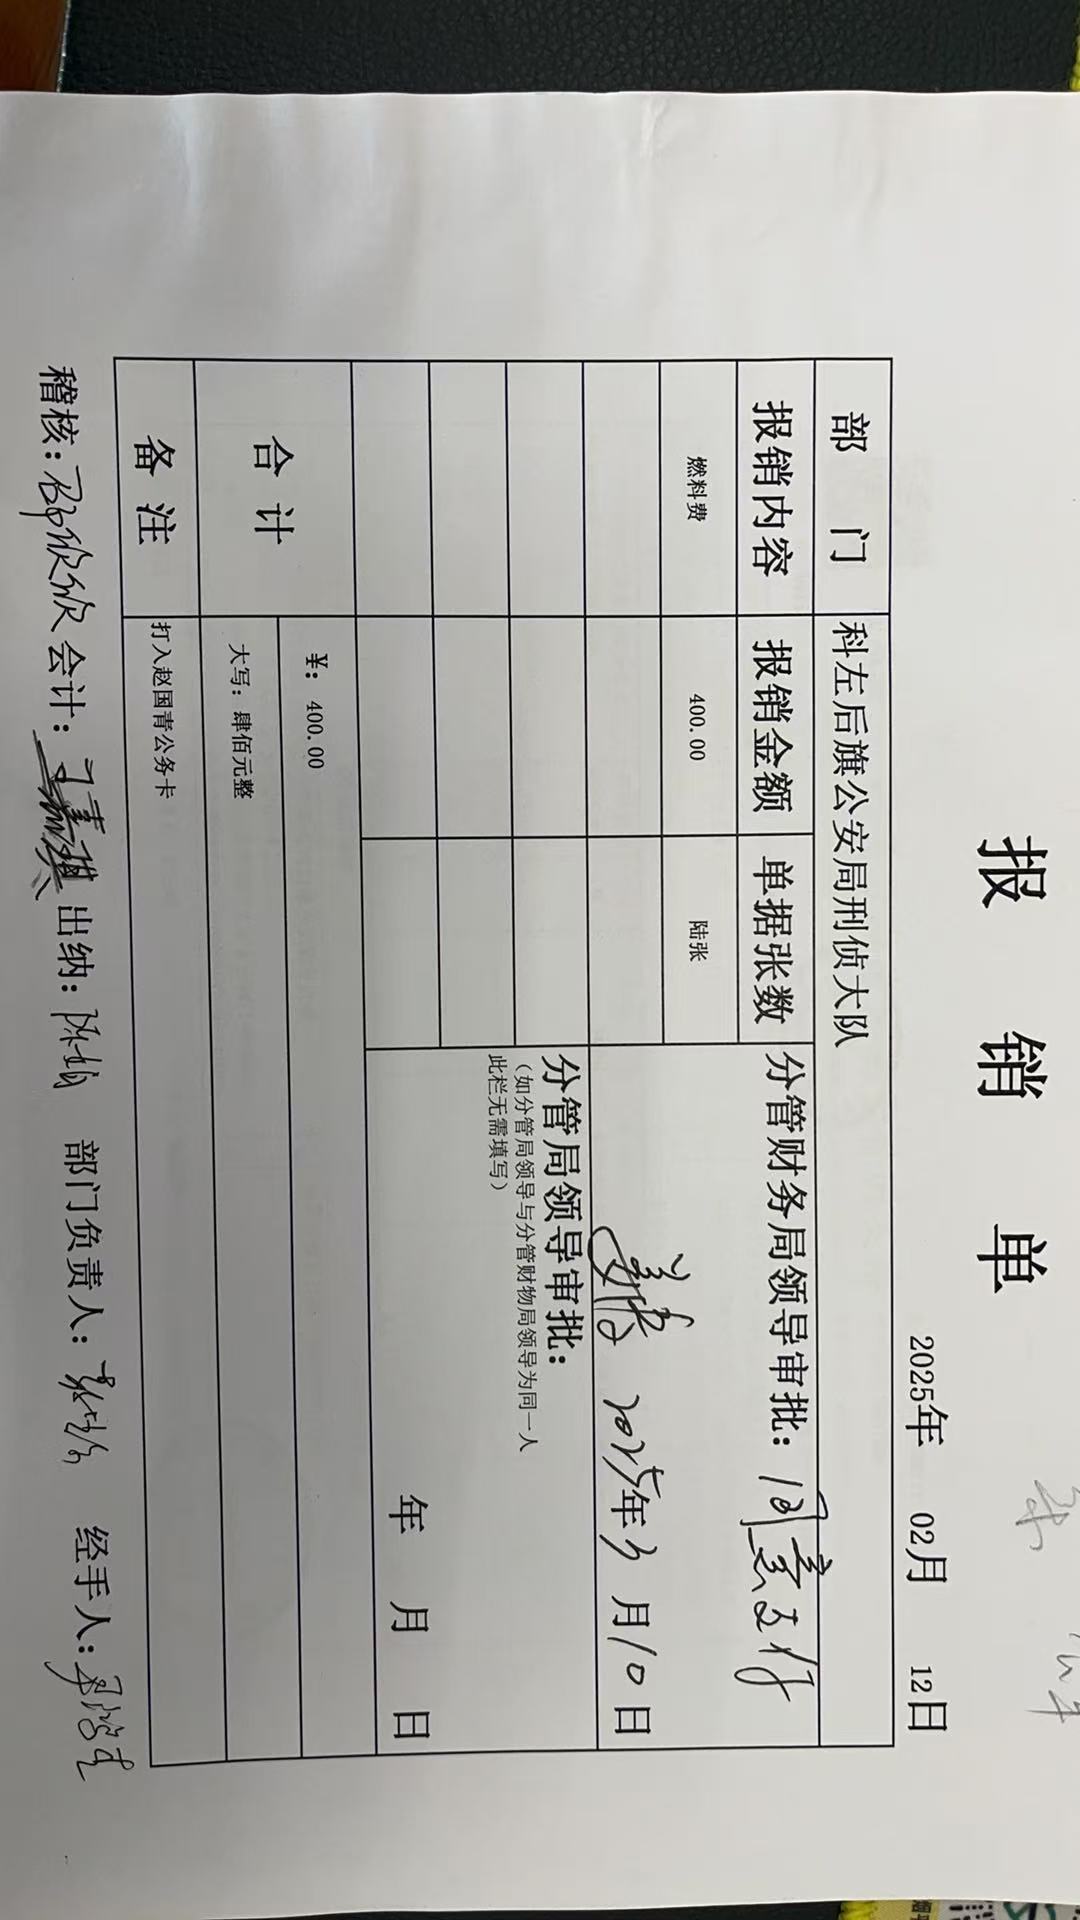 报 销 单
2025年 02月 12日
部 门 科左后旗公安局刑侦大队
报销内容 报销金额 单据张数 分管财务局领导审批：同意支付
燃料费 400.00 陆张
2025年3月10日
分管局领导审批：
（如分管局领导与分管财物局领导为同一人
此栏无需填写）
年 月 日
合 计 ¥：400.00
大写：肆佰元整
备 注 打入赵国青公务卡
稽核： 会计： 出纳： 部门负责人： 经手人：